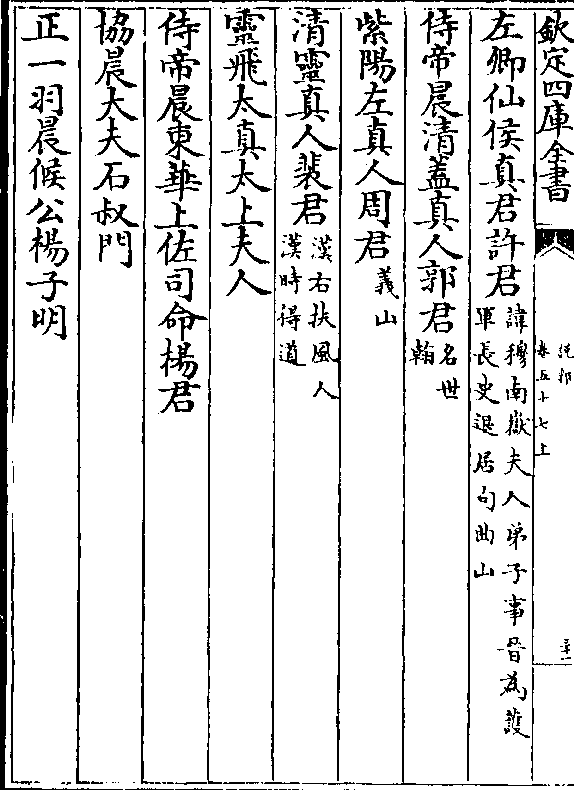 欽定四庫全書
說郛
卷五十七上
三十一
左卿仙侯真君許君諱穆南嶽夫人弟子事晉為護軍長史退居句曲山
侍帝晨清蓋真人郭君名世翰
紫陽左真人周君義山
清靈真人裴君漢右扶風人漢時得道
靈飛太真太上夫人
侍帝晨東華上佐司命楊君
協晨大夫石叔門
正一羽晨候公楊子明